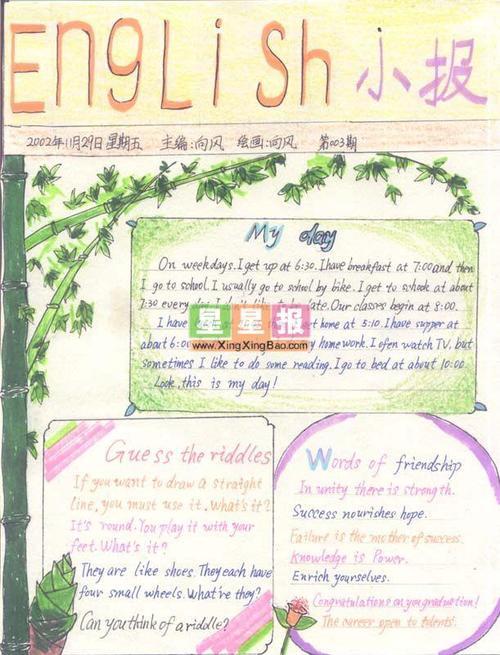 English 小报
2002年11月29日 星期五 主编:向风 绘画:向风 第003期
My day
On weekdays. I get up at 6:30. I have breakfast at 7:00 and then
I go to school. I usually go to school by bike. I get to school at about
7:30 every day. I don't like to be late. Our classes begin at 8:00.
I have home at 5:10. I have supper at
about 6:00 my homework. I ofen watch TV, but
sometimes I like to do some reading. I go to bed at about 10:00.
Look, this is my day!
星星报
www.XingXingBao.com
Guess the riddles
If you want to draw a straight
line, you must use it. What's it?
It's round. You play it with your
feet. What's it?
They are like shoes. They each have
four small wheels. What're they?
Can you think of a riddle?
Words of friendship
In unity there is strength.
Success nourishes hope.
Failure is the mother of success.
Knowledge is Power.
Enrich yourselves.
Congratulations on you graduation!
The career open to talents.